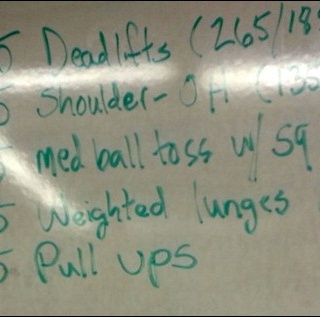 5 Deadlifts (265/18
5 Shoulder-OH (135
5 med ball toss w/ sq
5 Weighted lunges
5 Pull ups